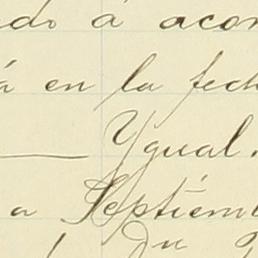 do á acor
á en la fech
Ygual.
a Septiemb